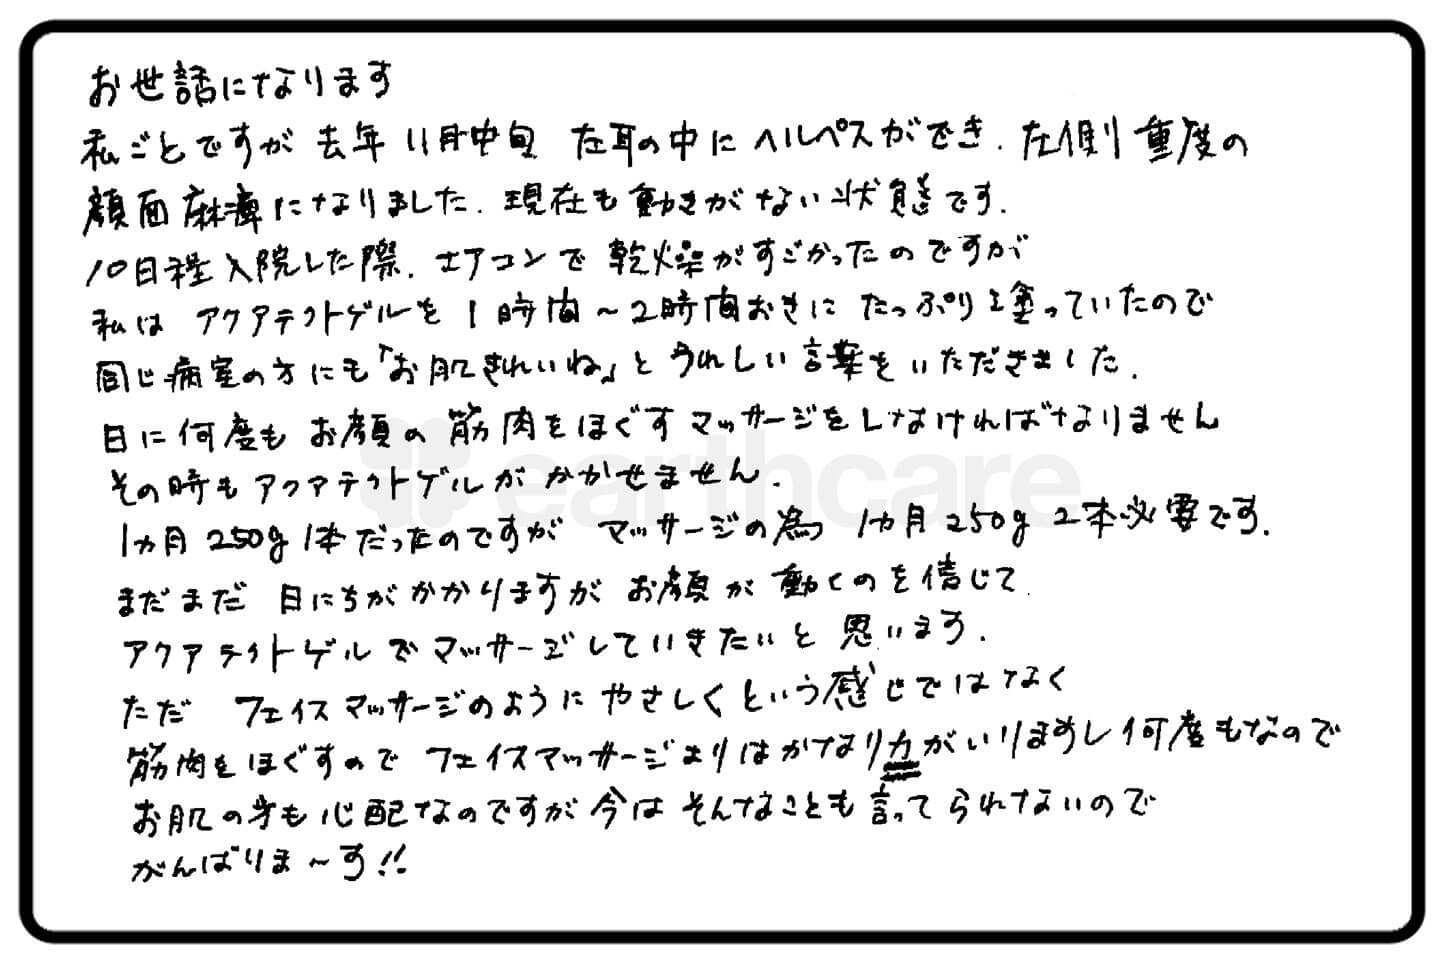 お世話になります
私ごとですが 去年 11月中旬 左耳の中に ヘルペスができ、左側 重度の
顔面麻痺になりました。現在も動きがない状態です。
10日程入院した際、エアコンで乾燥がすごかったのですが
私は アクアテクトゲルを 1時間〜2時間おきに たっぷりと塗っていたので
同じ病室の方にも「お肌きれいね」と うれしい言葉をいただきました。
日に何度も お顔の 筋肉をほぐすマッサージをしなければなりません
その時もアクアテクトゲルが かかせません。
1ヵ月 250g 1本だったのですが マッサージの為 1ヵ月 250g 2本必要です。
まだまだ 日にちがかかりますが お顔が 動くのを信じて
アクアテクトゲルでマッサージしていきたいと思います。
ただ フェイスマッサージのように やさしくという感じではなく
筋肉をほぐすので フェイスマッサージよりはかなり力がいりますし 何度もなので
お肌の方も心配なのですが 今は そんなことも言ってられないので
がんばりま〜す!!
earthcare